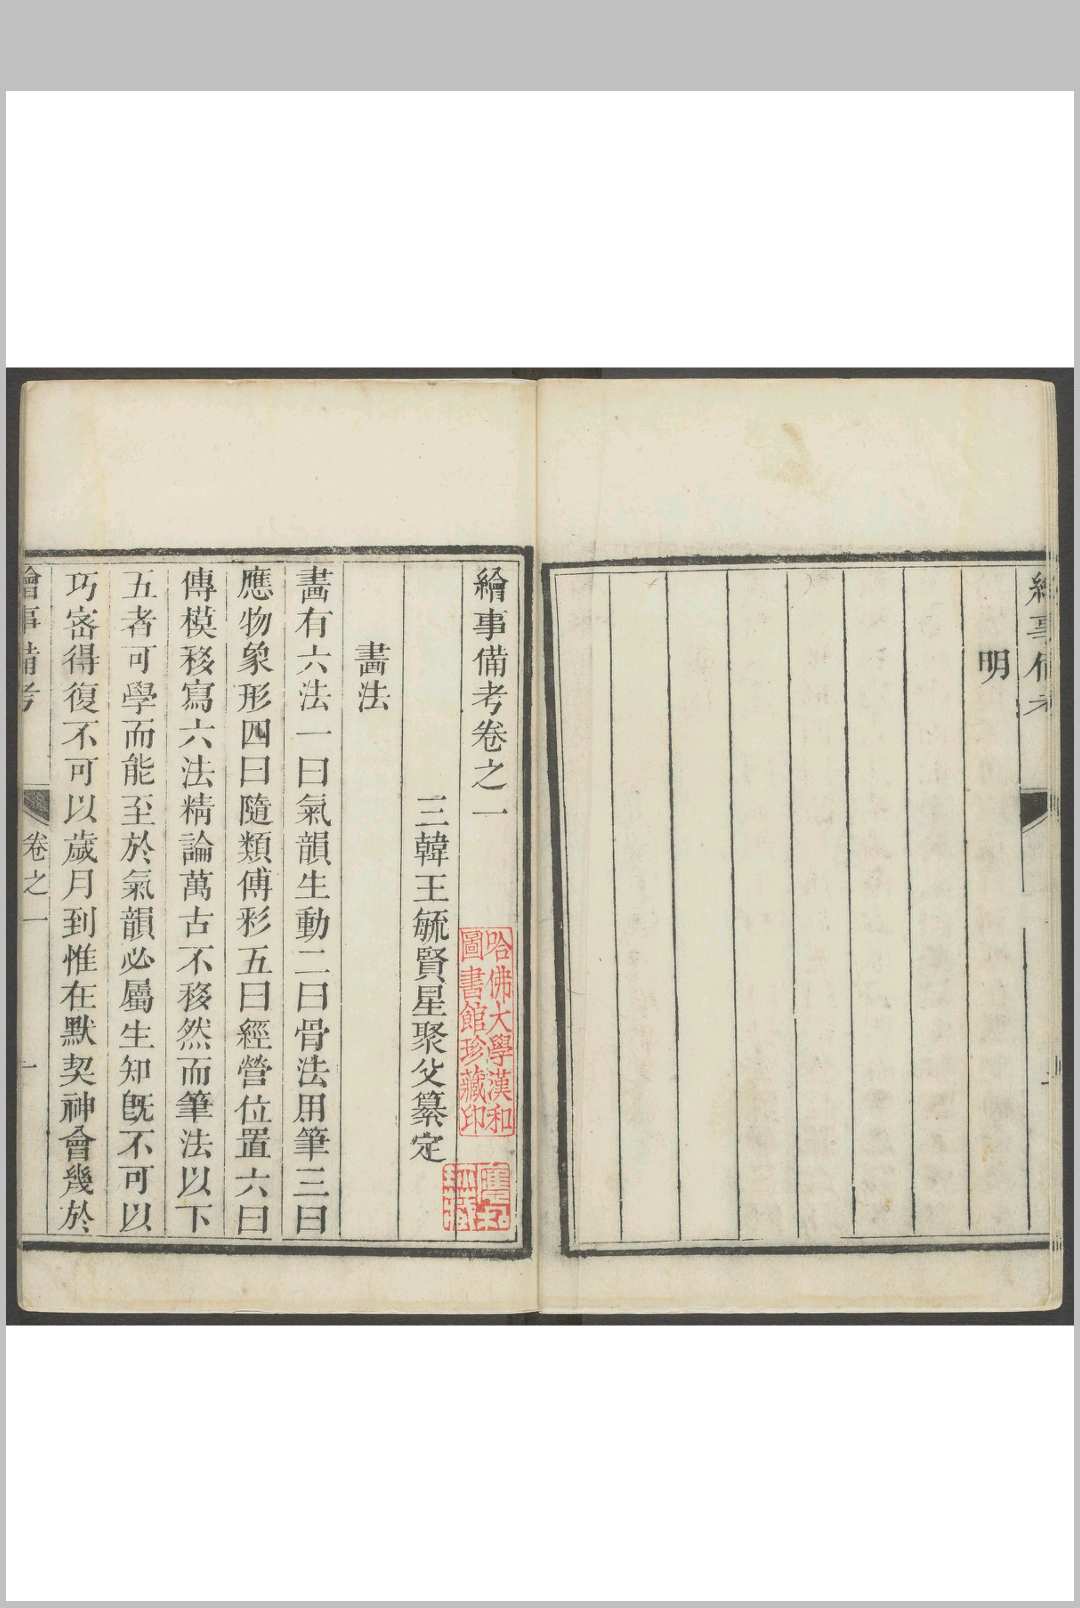 繪事備考
明
繪事備考卷之一
三韓王毓賢星聚父纂定
畵法
畵有六法一曰氣韻生動二曰骨法用筆三曰
應物象形四曰隨類傅彩五曰經營位置六曰
傳模移寫六法精論萬古不移然而筆法以下
五者可學而能至於氣韻必屬生知旣不可以
巧密得復不可以歲月到惟在默契神會幾於
繪事備考
卷之一
一
哈佛大學漢和
圖書館珍藏印